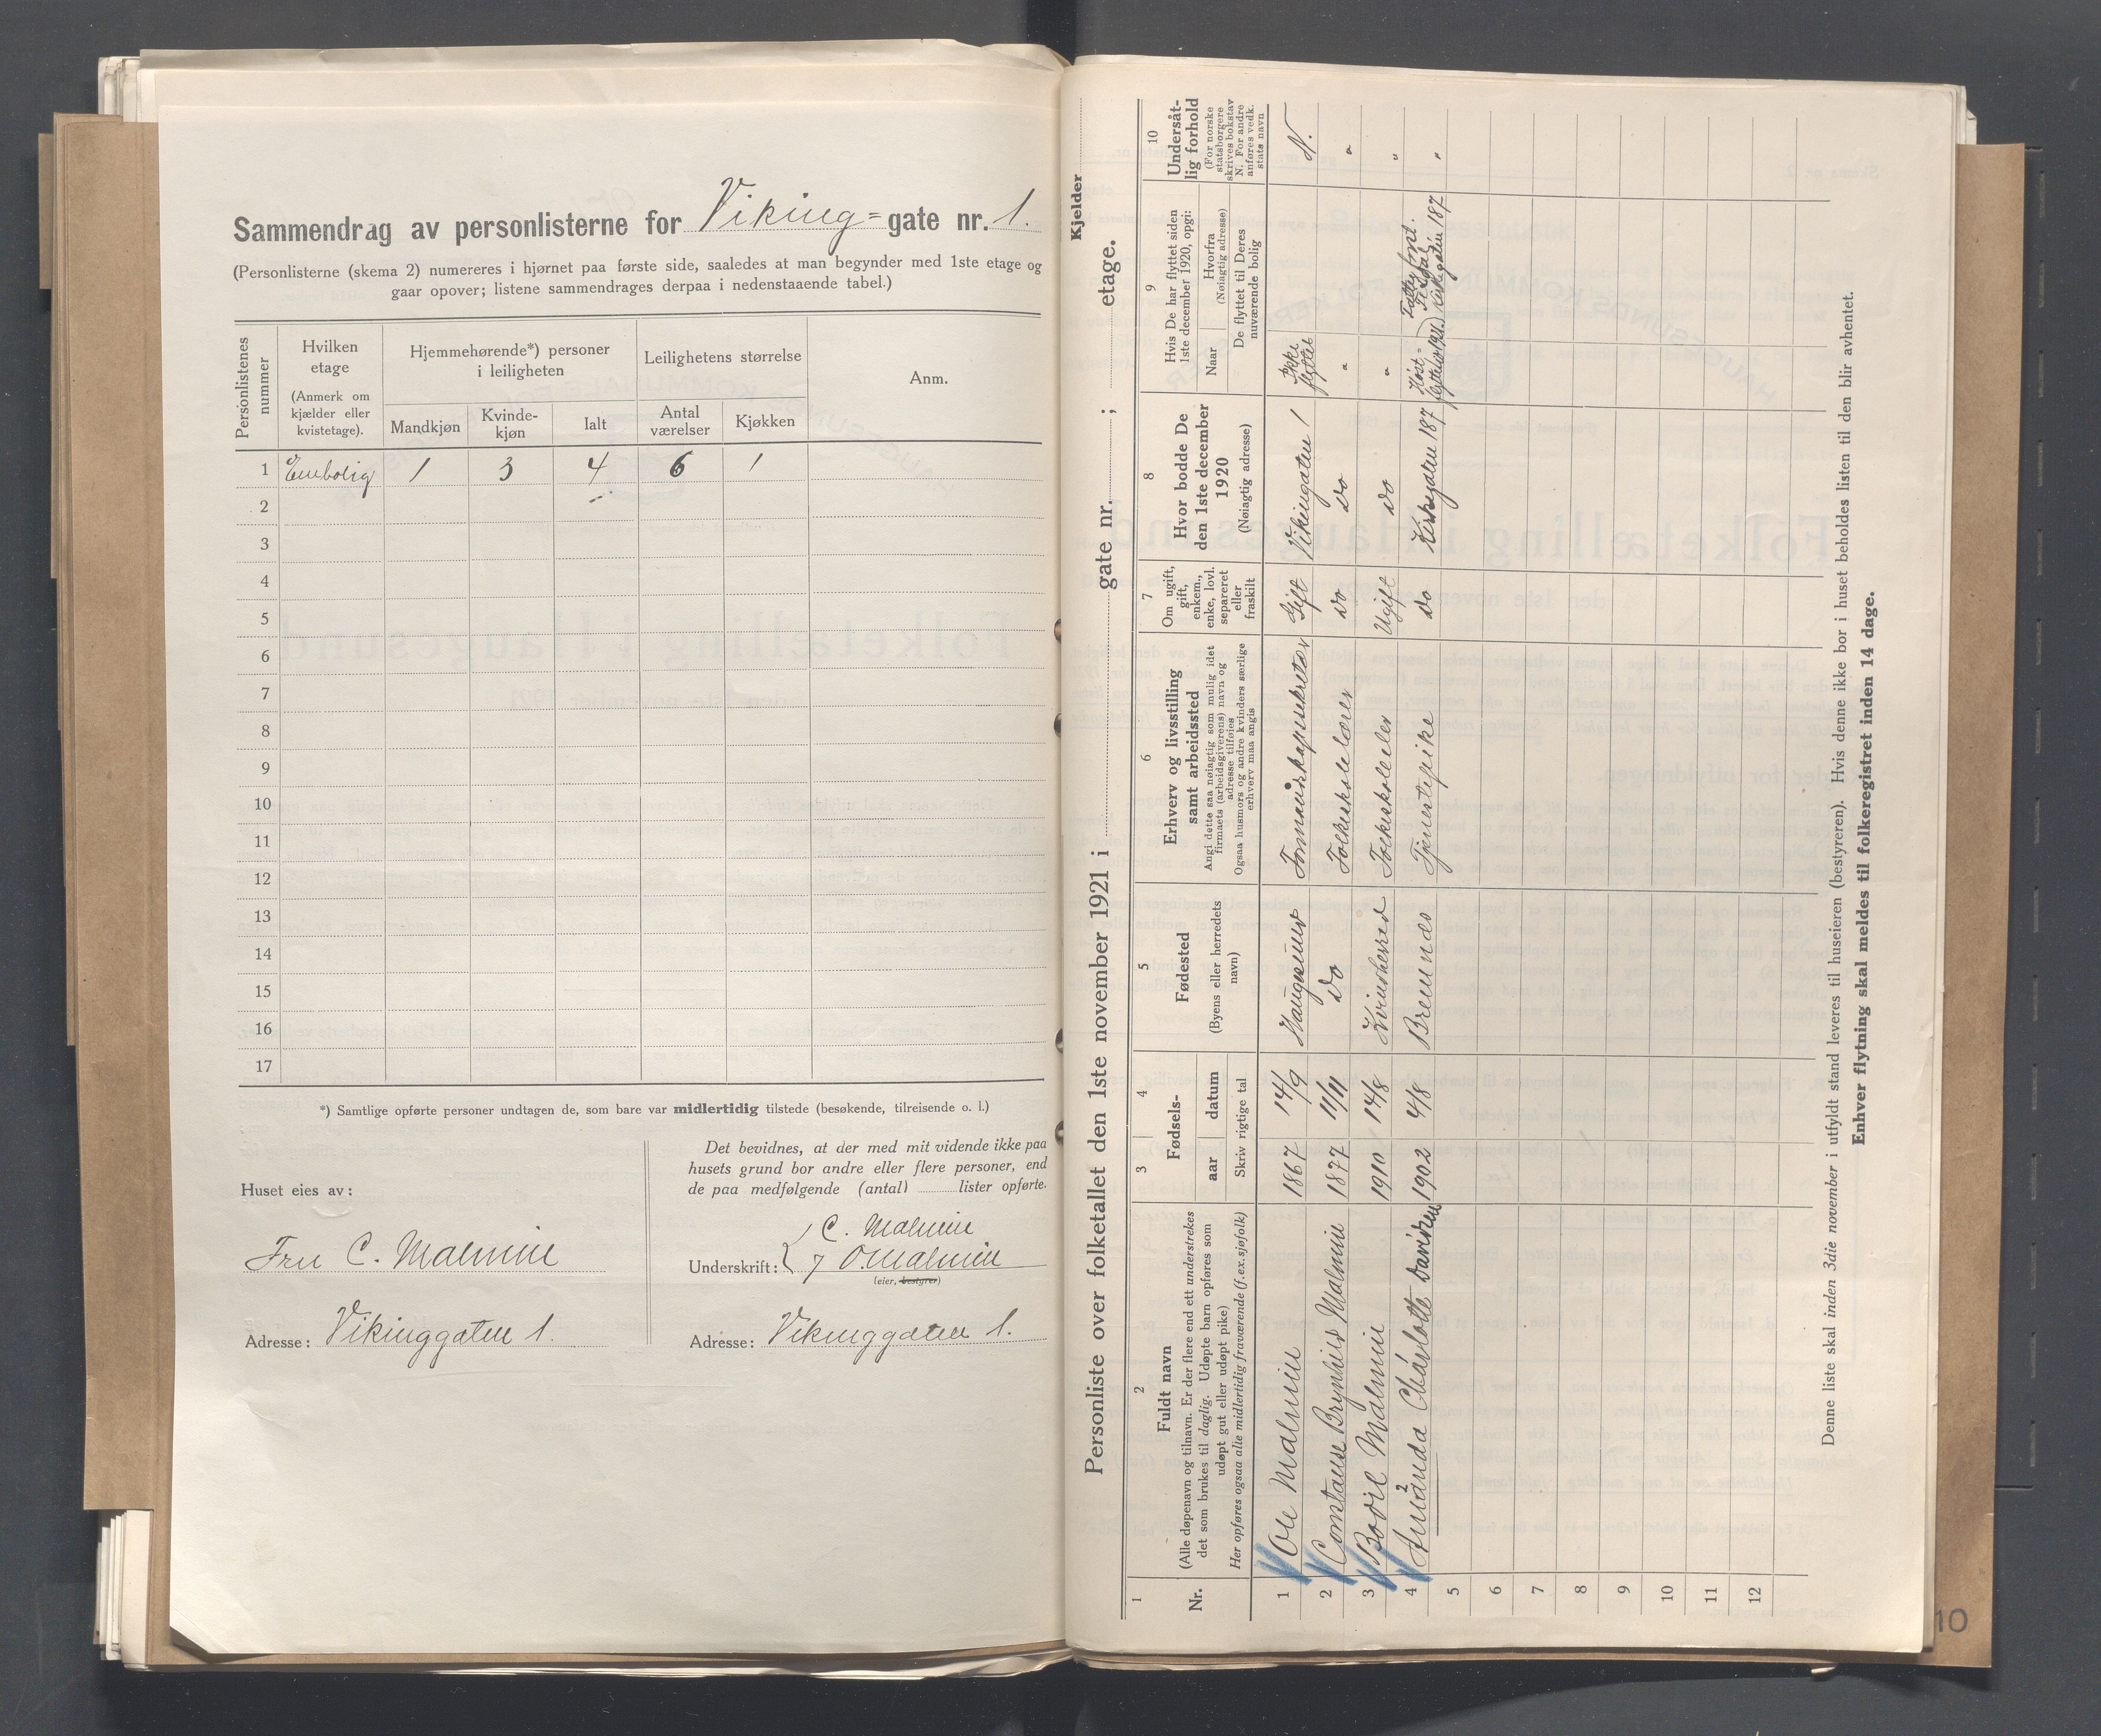 Sammendrag av personlisterne for Viking= gate nr. 1.
(Personlisterne (skema 2) numereres i hjørnet paa første side, saaledes at man begynder med 1ste etage og
gaar opover; listene sammendrages derpaa i nedenstaaende tabel.)
Personlistenes nummer
Hvilken etage (Anmerk om kjælder eller kvistetage).
Hjemmehørende*) personer i leiligheten
Mandkjøn Kvindekjøn Ialt
Leilighetens størrelse
Antal værelser Kjøkken
Anm.
1 Enebolig 1 3 4 6 1
2
3
4
5
6
7
8
9
10
11
12
13
14
15
16
17
*) Samtlige opførte personer undtagen de, som bare var midlertidig tilstede (besøkende, tilreisende o. l.)
Huset eies av:
Fru C. Malmin
Adresse: Vikinggaten 1.
Det bevidnes, at der med mit vidende ikke paa
husets grund bor andre eller flere personer, end
de paa medfølgende (antal) lister opførte.
C. Malmin
Underskrift: O. Malmin
(eier, bestyrer)
Adresse: Vikinggaten 1.
Kjelder
Personliste over folketallet den 1ste november 1921 i gate nr. ; etage.
1 Nr.
2 Fuldt navn
(Alle døpenavn og tilnavn. Er der flere end ett understrekes
det som brukes til daglig. Udøpte barn opføres som
udøpt gut eller udøpt pike)
Her opføres ogsaa alle midlertidig fraværende (f. ex. sjøfolk)
3 4 Fødsels-
aar datum
Skriv rigtige tal
5 Fødested
(Byens eller herredets navn)
6 Erhverv og livsstilling
samt arbeidssted
Angi dette saa nøiagtig som mulig idet
firmaets (arbeidsgiverens) navn og
adresse tilføies
Ogsaa husmors og andre kvinders særlige
erhverv maa angis
7 Om ugift,
gift,
enkem.,
enke, lovl.
separeret
eller
fraskilt
8 Hvor bodde De
den 1ste december
1920
(Nøiagtig adresse)
9 Hvis De har flyttet siden
1ste december 1920, opgi:
Naar
Hvorfra
(Nøiagtig adresse)
De flyttet til Deres
nuværende bolig
10 Undersåt-
lig forhold
(For norske
statsborgere
skrives bokstav
N. For andre
anføres vedk.
stats navn
1 Ole Malmin 1867 14/9 Haugesund Formandskapssekretær Gift Vikingaten 1 Ikke flyttet N.
2 Constanse Brynhild Malmin 1877 11/11 do Folkeskolelærer do do " "
3 Bodil Malmin 1910 14/8 Kvindherred Folkeskoleelev Ugift do " "
4 Amanda Charlotte Davidsen 1902 4/8 Bremnes Tjenestepike do Kirkegaten 187 Høst- Kirkegaten 187 "
5
6
7
8
9
10
11
12
Denne liste skal inden 3die november i utfyldt stand leveres til huseieren (bestyreren). Hvis denne ikke bor i huset beholdes listen til den blir avhentet.
Enhver flytning skal meldes til folkeregistret inden 14 dage.
10